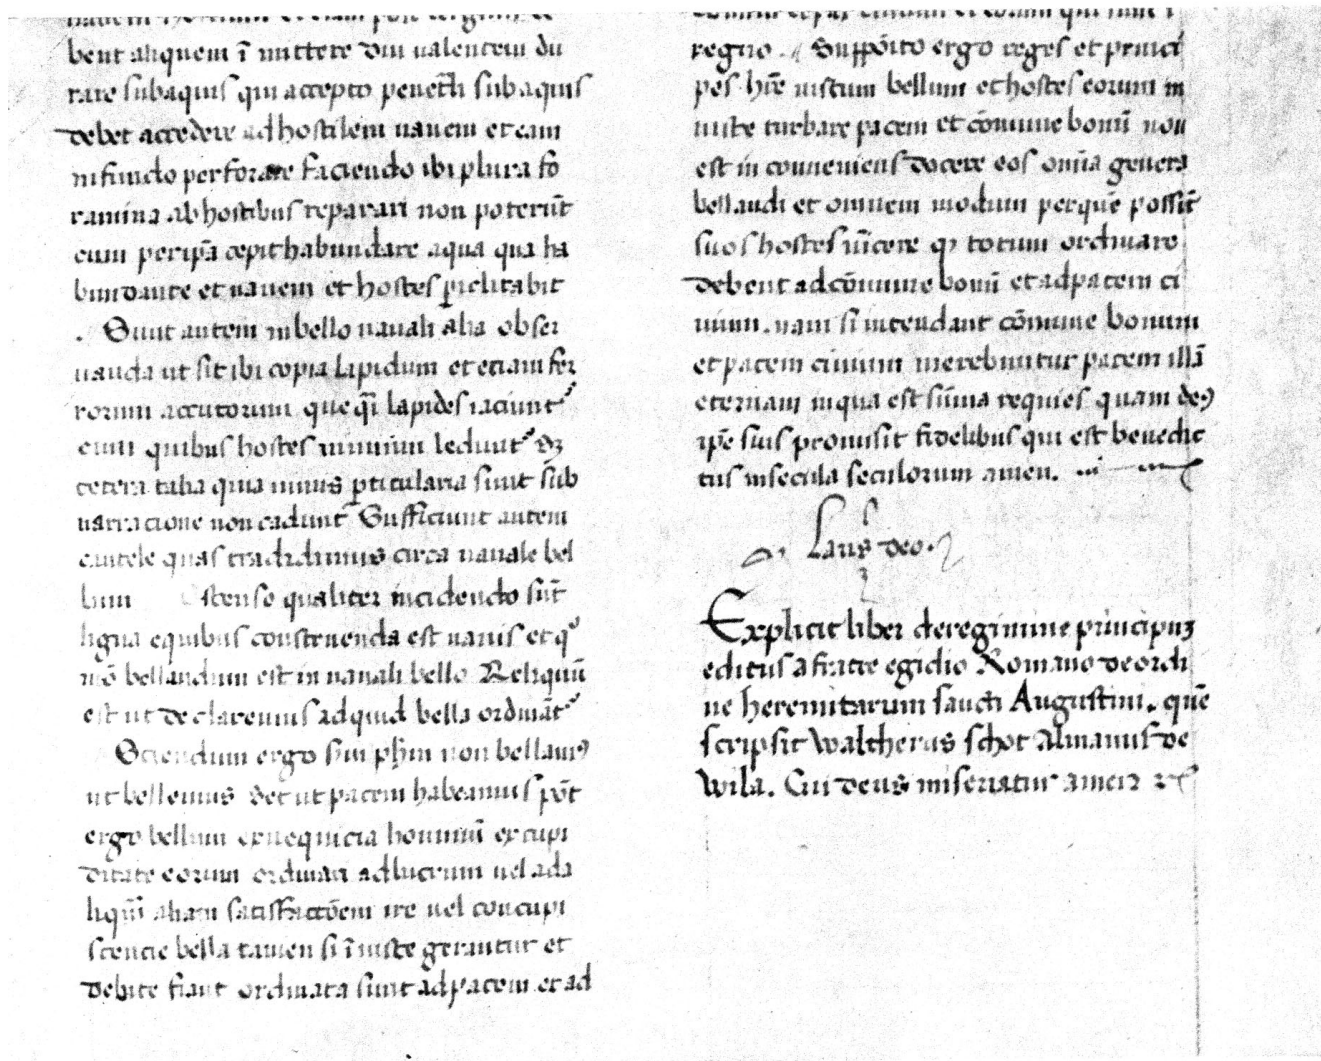 bent aliquem ī mittere diu ualentem du
rare sub aquis qui accepto penetli sub aquis
debet accedere ad hostilem nauem et eam
in fundo perforare faciendo ibi plura fo
ramina ab hostibus reparari non poterūt
cum per ipā cepit habundare aqua qua ha
bundante et nauem et hostes ꝑiclitabit
. Sunt autem in bello nauali alia obser
uanda ut sit ibi copia lapidum et etiam fer
rorum accutorum que qī lapides iaciunt᷑
cum quibus hostes nimium ledunt᷑
cetera talia quia nimis ꝑticularia sunt sub
narracione non cadunt᷑ Sufficiunt autem
cautele quas tradidimus circa nauale bel
lum Ostenso qualiter incidendo sūt
ligna e quibus construenda est nauis et qͦ
mō bellandum est in nauali bello Reliquū
est ut declaremus ad quid bella ordināt᷑
Sciendum ergo sm̄ phm̄ non bellamꝰ
ut bellemus set ut pacem habeamus pōt
ergo bellum ex nequicia hominū ex cupi
ditate eorum ordinari ad lucrum uel ad a
liquā aliam satisfaccōem ire uel concupi
scencie bella tamen si ī iuste gerantur et
debite fiant ordinata sunt ad pacem et ad
regno. Supposito ergo reges et princi
pes hr̄e iustum bellum et hostes eorum in
iuste turbare pacem et cōmune bonū non
est in conueniens docere eos omīa genera
bellandi et omnem modum per quē possīt
suos hostes uīcere totum ordinare
debent ad cōmune bonū et ad pacem ci
uium. nam si intendant cōmune bonum
et pacem ciuium merebuntur pacem illā
eternam in qua est sūma requies quam deꝰ
ip̄e suis promisit fidelibus qui est benedic
tus in secula seculorum amen.
Laus deo.
Explicit liber de regimine principuꝫ
editus a fratre egidio Romano de ordi
ne heremitarum sancti Augustini. quē
scripsit Waltherus schot Almanus de
Wila. Cui deus miseriatur amen